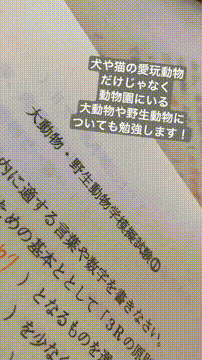 犬や猫の愛玩動物
だけじゃなく
動物園にいる
大動物や野生動物に
ついても勉強します！
大動物・野生動物学模擬試験①
内に適する言葉や数字を書きなさい。
ための基本ととして「3Rの原
）となるものを選
）を少な